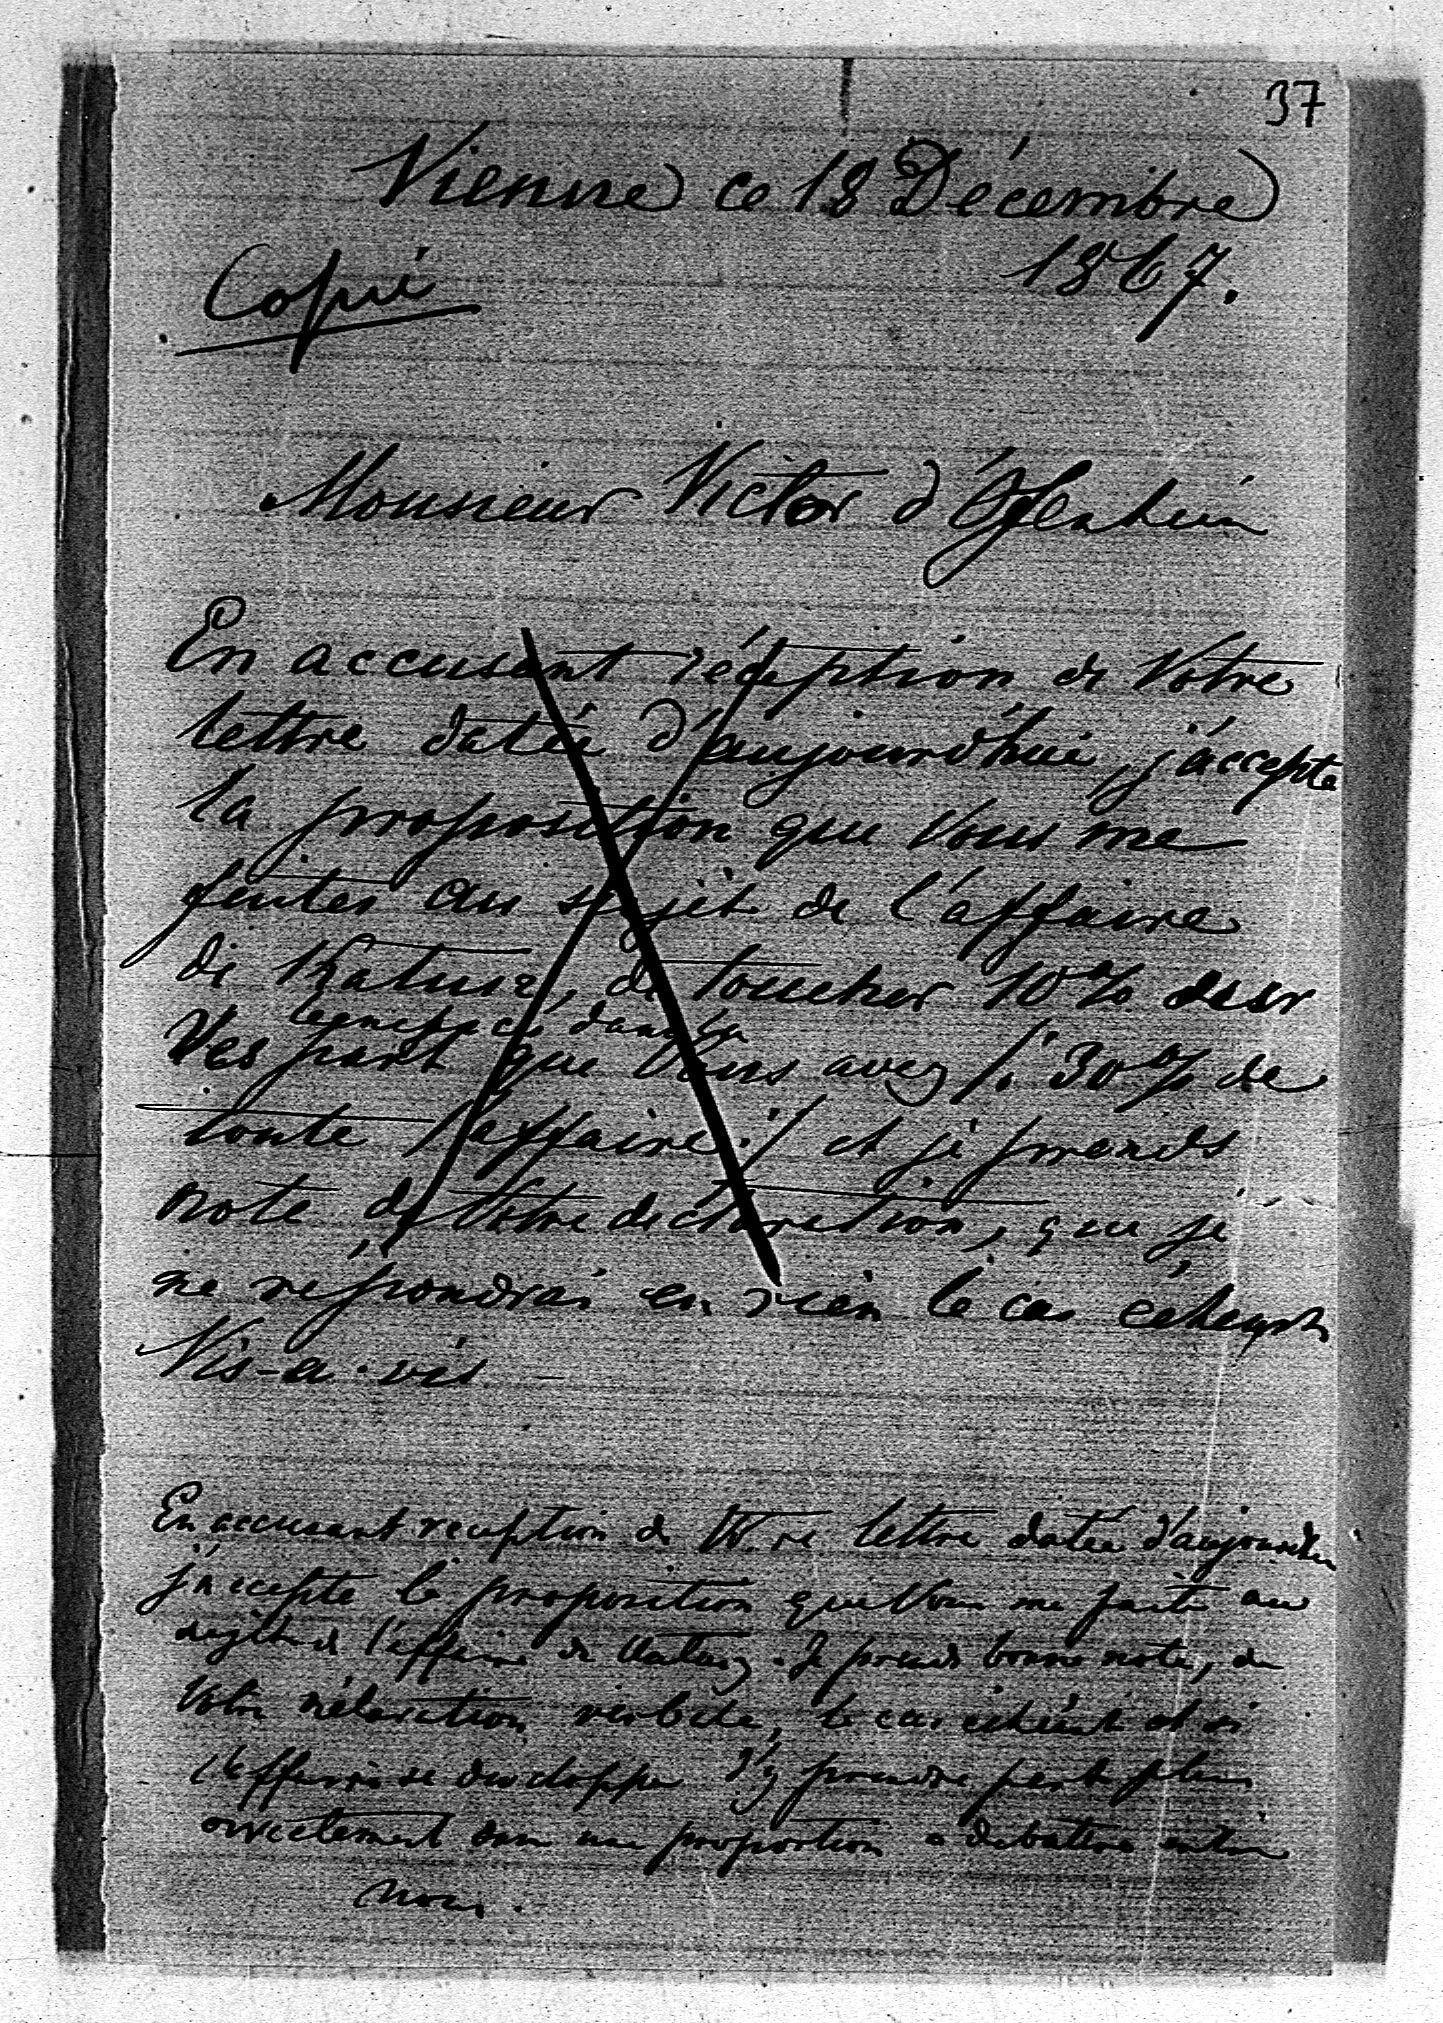 37
Vienne ce 18 Décembre
1867.
Copié
Monsieur Victor d'Ofenheim
En accusant réception de Votre
lettre datée d'aujourd'hui, j'accepte
la proposition que Vous me
faites au sujet de l'affaire
de Kalusz, de toucher 10% des
bénéfices dans la
part que Vous avez /: 30% de
toute l'affaire :/ et je prends
note de Votre declaration, que je
ne répondrai en rien le cas échéant
Vis-a-vis
En accusant reception de Votre lettre datée d'aujourdhui
j'accepte la proposition que Vous me faite au
sujet de l'affaire de Kalusz. Je prends bonne note, de
Votre déclaration verbale, le cas échéant et si
l'affaire se developpe d'y prendre part plus
directement dans une proportion a debattre entre
nous.